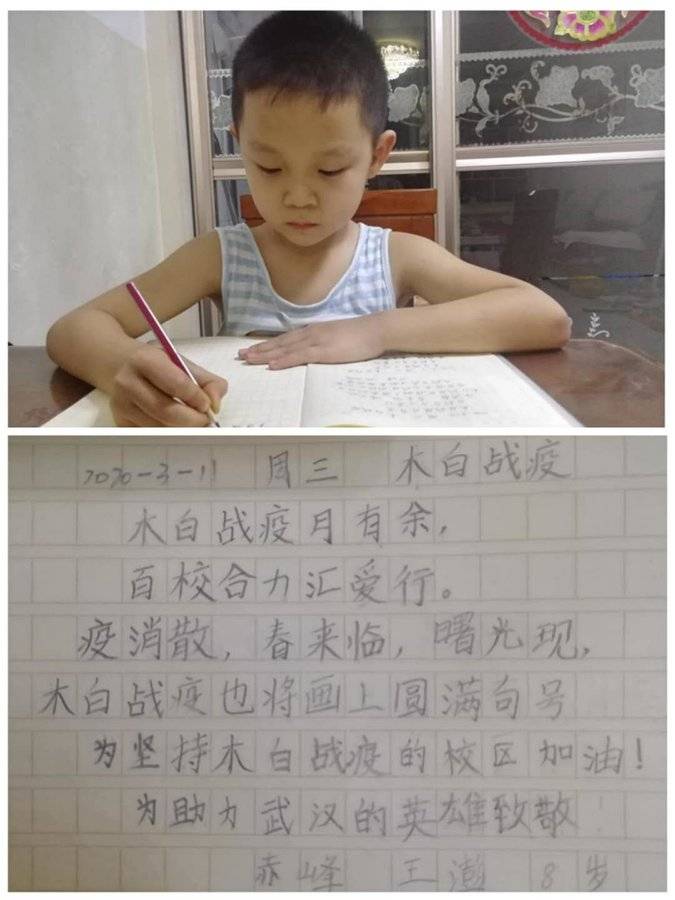 2020-3-11 周三 木白战疫
木白战疫月有余，
百校合力汇爱行。
疫消散，春来临，曙光现，
木白战疫也将画上圆满句号
为坚持木白战疫的校区加油！
为助力武汉的英雄致敬
赤峰 王瀚 8岁